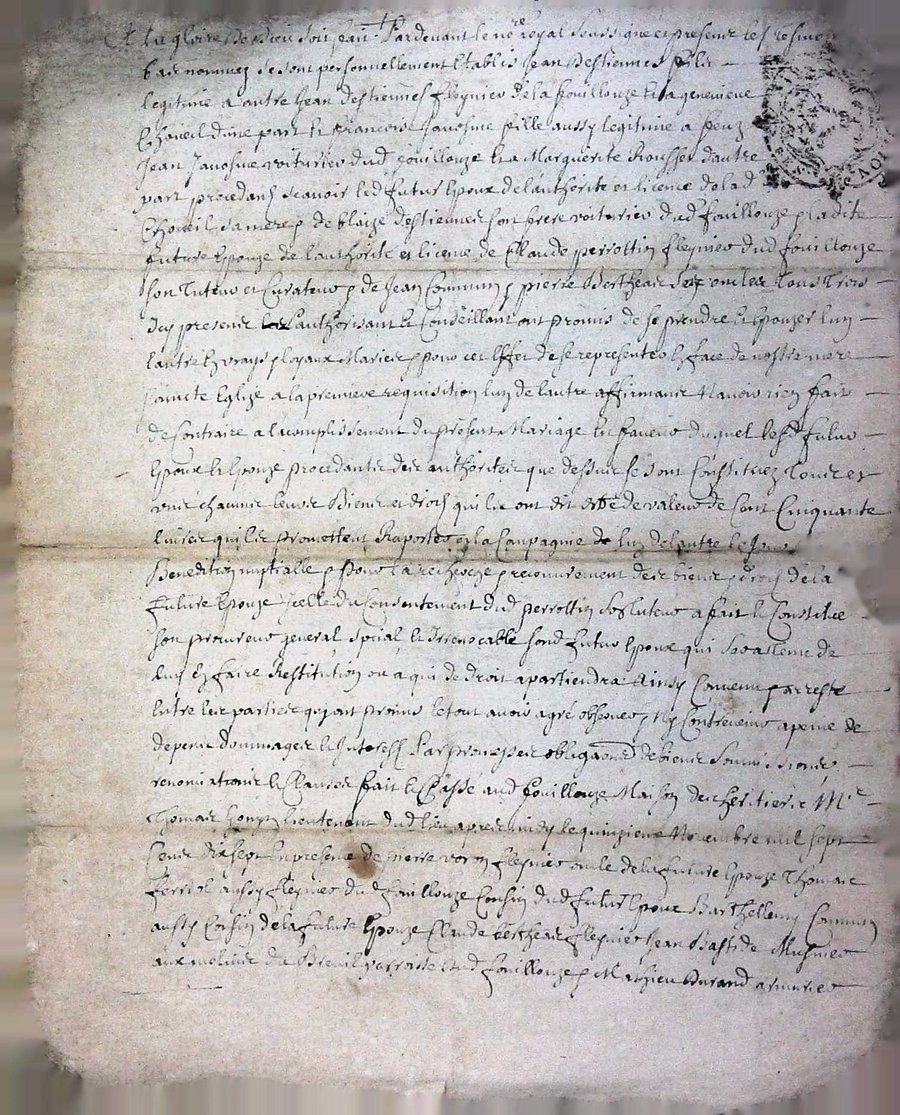 A la gloire de Dieu soit Jean. Pardevant le no.re royal soussigné et present les tesmoins
bas nommez se sont personnellement establis Jean destiennes fils
legitime a autre Jean destiennes fleynier de la fouillouze et a genevieve
Choveil dune part et francoise Janosme fille aussy legitime a feuz
Jean Janosme voiturier dud fouillouze et a Marguerite Rousset dautre
part procedans scavoir led futur epoux de lauthorité et licence de lad
Choveil sa mere & de blaize destiennes son frere voiturier dud fouillouze & ladite
future epouze de lauthorité et licence de Claude perrottin fleynier dud fouillouze
son tuteur et curateur & de Jean Commun & pierre Bertheas ses oncles tous trois
Icy presens les authorisant et Conseillant ont promis de se prendre et epouzer lun
lautre en vrays & loyaux Mariez & pour cet effet de se representer en face de nostre mere
saincte Eglise a la premiere requisition lun de lautre affirmants navoir rien fait
de Contraire a lacomplissement du present Mariage en faveur duquel lesd futur
epoux et epouze procedants des authoritez que dessus se sont Constituez tous et
uns chacuns leurs Biens et droits qui ont dit de valeur de Cent Cinquante
livres quils promettent Raporter en la Compagnie de lun de lautre le Jour
Benediction nuptialle & pour la recherche & recouvrement des biens & droits de la
future epouze Icelle du Consentement dud perrottin tuteur a fait et Constitue
son procureur general special et Irrevocable sond futur epoux qui
en faire Restitution ou a qui de droit apartiendra Ainsy Convenu & arresté
entre les parties qui ont promis le tout avoir agré observer & ny Contrevenir a peine de
depens dommages et Interests Par promesses obligaons de biens soumissions
renonciations et Clauses fait et Passé aud fouillouze Maison des heritiers M.e
Thomas lieutenant dud lieu apres midy le quinzieme Novembre mil sept
Cens dix sept En presence de pierre fleynier oncle de la future epouze Thomas
ferriol aussy fleynier dud fouillouze Cousin dud futur epoux Barthellemy Commun
aussy Cousin de la future epouze Claude bertheas fleynier Jean Bastide Musnier
aux molins du Breuil parroisse dud fouillouze & Mathieu Durand armurier